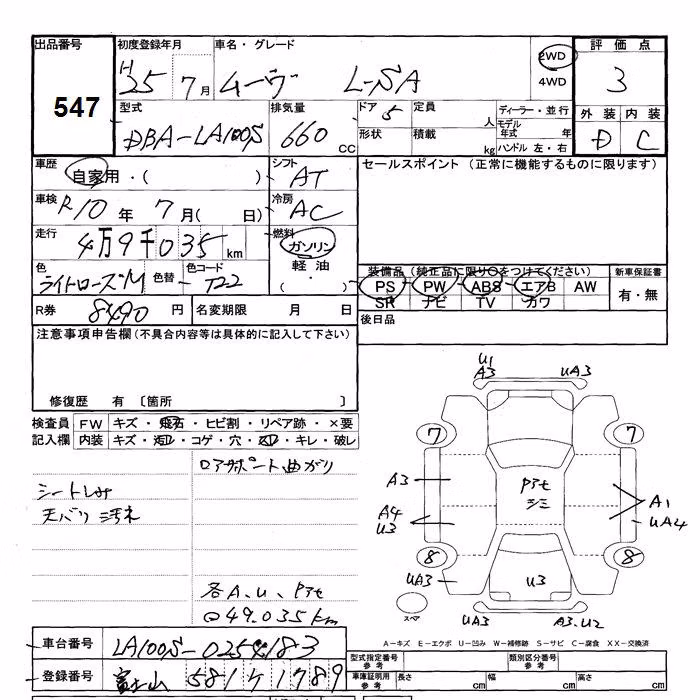 出品番号 初度登録年月 車名・グレード 評価点
547 H25 7月 ムーヴ L-SA 2WD 4WD 3
型式 排気量 ドア 5 定員 人 ディーラー・並行 外装 内装
DBA-LA100S 660 CC 形状 積載 kg モデル年式 年 D C
ハンドル 左・右
車歴 自家用・( ) シフト AT セールスポイント (正常に機能するものに限ります)
車検 R10年 7月( 日) 冷房 AC
走行 4万9千035km 燃料 ガソリン
軽油・( )
色 ライトローズM 色替 - 色コード T22
装備品(純正品に限り○をつけてください) 新車保証書
PS PW ABS エアB AW 有・無
SR ナビ TV カワ
R券 8490円 名変期限 月 日 後日品
注意事項申告欄(不具合内容等は具体的に記入して下さい)
修復歴 有 〔箇所 〕
検査員 FW キズ・飛石・ヒビ割・リペア跡・×要
記入欄 内装 キズ・ ・コゲ・穴・ ・キレ・破レ
ロアサポート曲がり
シートしみ
天バリ 汚れ
各A、U、Pアセ
◎49.035km
U1
A3 UA3
7 7
A3 Pアセ
シミ A1
A4
U3 UA4
8 8
UA3 U3
スペア UA3 A3.U2
A-キズ E-エクボ U-凹み W-補修跡 S-サビ C-腐食 XX-交換済
車台番号 LA100S-0250183
登録番号 富士山 581 1789
型式指定番号 参考 類別区分番号 参考
車庫証明用 参考 長さ cm 幅 cm 高さ cm